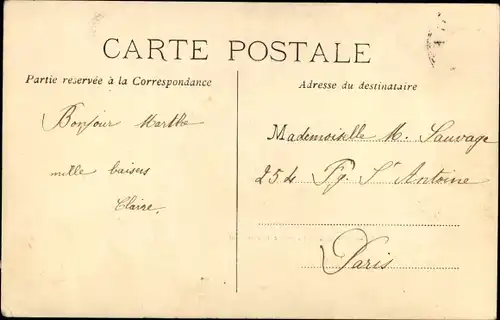 CARTE POSTALE
Partie reservée à la Correspondance
Adresse du destinataire
Bonjour Marthe
mille baisers
Claire,
Mademoiselle M. Sauvage
254 Fg St Antoine
Paris